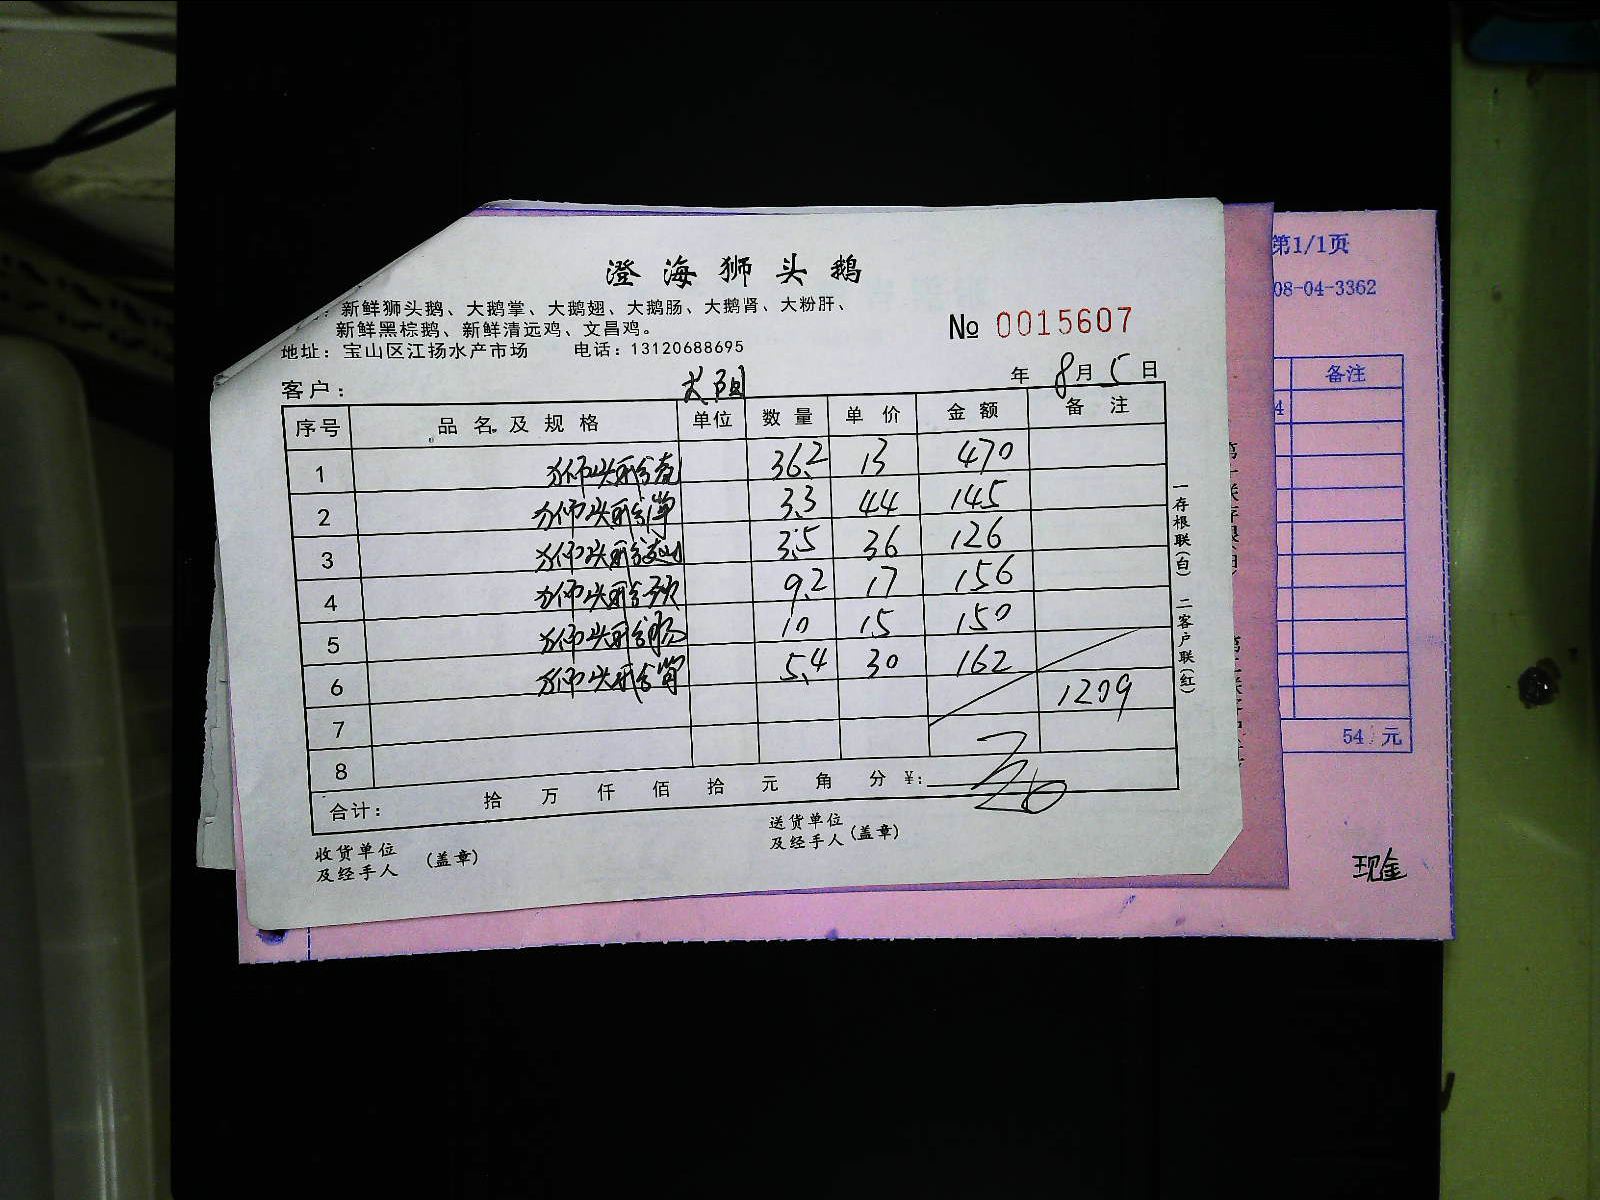 澄海狮头鹅
：新鲜狮头鹅、大鹅掌、大鹅翅、大鹅肠、大鹅肾、大粉肝、
新鲜黑棕鹅、新鲜清远鸡、文昌鸡。
No 0015607
地址：宝山区江扬水产市场 电话：13120688695
客户： 年 8月5日
序号 品名及规格 单位 数量 单价 金额 备注
1 狮头鹅 36.2 13 470
2 狮头鹅 3.3 44 145
3 狮头鹅 3.5 36 126
4 狮头鹅 9.2 17 156
5 狮头鹅肠 10 15 150
6 狮头鹅 5.4 30 162
7 1209
8
合计： 拾 万 仟 佰 拾 元 角 分 ￥：
收货单位
及经手人（盖章）
送货单位
及经手人（盖章）
一存根联(白) 二客户联(红)
第1/1页
08-04-3362
备注
4
54 元
现金